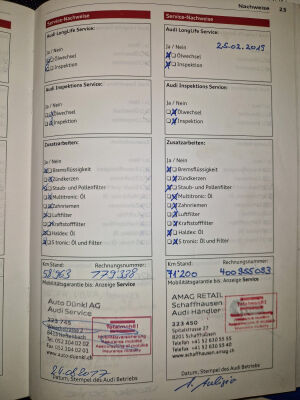 Nachweise 23
Service-Nachweise
Audi LongLife Service:
Ja / Nein
Ölwechsel
Inspektion
Audi Inspektions Service:
Ja / Nein
Ölwechsel
Inspektion
Zusatzarbeiten:
Ja / Nein
Bremsflüssigkeit
Zündkerzen
Staub- und Pollenfilter
Multitronic: Öl
Zahnriemen
Luftfilter
Kraftstofffilter
Haldex: Öl
S tronic: Öl und Filter
Km Stand: Rechnungsnummer:
58'963 179338
Mobilitätsgarantie bis: Anzeige Service
Auto Dünki AG
Audi Service
Totalmobil!
www.auto-duenki.ch
Datum, Stempel des Audi Betriebs
Service-Nachweise
Audi LongLife Service:
Ja / Nein 25.02.2019
Ölwechsel
Inspektion
Audi Inspektions Service:
Ja / Nein
Ölwechsel
Inspektion
Zusatzarbeiten:
Ja / Nein
Bremsflüssigkeit
Zündkerzen
Staub- und Pollenfilter
Multitronic: Öl
Zahnriemen
Luftfilter
Kraftstofffilter
Haldex: Öl
S tronic: Öl und Filter
Km Stand: Rechnungsnummer:
71'200
Mobilitätsgarantie bis: Anzeige Service
AMAG RETAIL
Schaffhausen
Audi Händler
323 450
Spitalstrasse 27
8201 Schaffhausen
www.schaffhausen.amag.ch
Datum, Stempel des Audi Betriebs